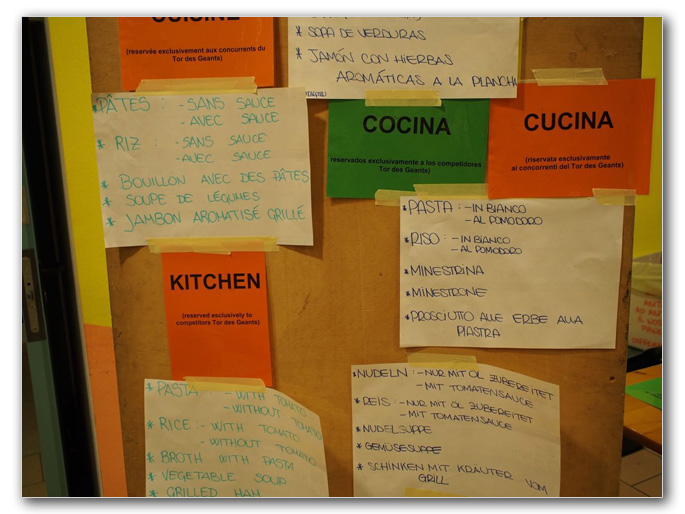 CUISINE
(reservée exclusivement aux concurrents du
Tor des Geants)
* SOPA DE VERDURAS
* JAMÓN CON HIERBAS
AROMÁTICAS A LA PLANCHA
* PÂTES : - SANS SAUCE
- AVEC SAUCE
* RIZ : - SANS SAUCE
- AVEC SAUCE
* BOUILLON AVEC DES PÂTES
* SOUPE DE LÉGUMES
* JAMBON AROMATISÉ GRILLÉ
COCINA
reservados exclusivamente a los competidores
Tor des Geants)
CUCINA
(riservata esclusivamente
ai concorrenti del Tor des Geants)
* PASTA : - IN BIANCO
- AL POMODORO
* RISO : - IN BIANCO
- AL POMODORO
* MINESTRINA
* MINESTRONE
* PROSCIUTTO ALLE ERBE ALLA
PIASTRA
KITCHEN
(reserved esclusively to
competitors Tor des Geants)
* PASTA : - WITH TOMATO
- WITHOUT TOMATO
* RICE : - WITH TOMATO
- WITHOUT TOMATO
* BROTH WITH PASTA
* VEGETABLE SOUP
* GRILLED HAM
* NUDELN : - NUR MIT ÖL ZUBEREITET
- MIT TOMATENSAUCE
* REIS : - NUR MIT ÖL ZUBEREITET
- MIT TOMATENSAUCE
* NUDELSUPPE
* GEMÜSESUPPE
* SCHINKEN MIT KRÄUTER VOM
GRILL